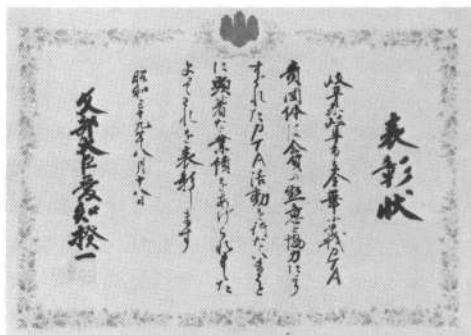 表彰状
岐阜県岐阜市本荘小学校PTA
貴団体は会員の熱意と協力により
すぐれたPTA活動を行ないまことに
に顕著な業績をあげられました
よってこれを表彰します
昭和三十九年八月二十八日
文部大臣愛知揆一